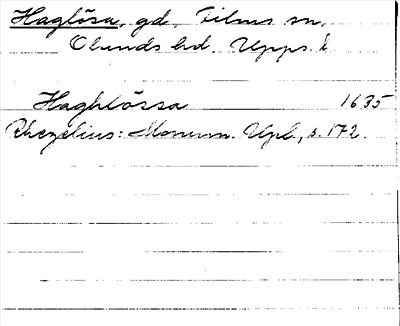 Haglösa, gd, Films sn,
Olands hd. Upps. l
Haghlössa 1635
Rhezelius: Monum. Upl., s. 172.